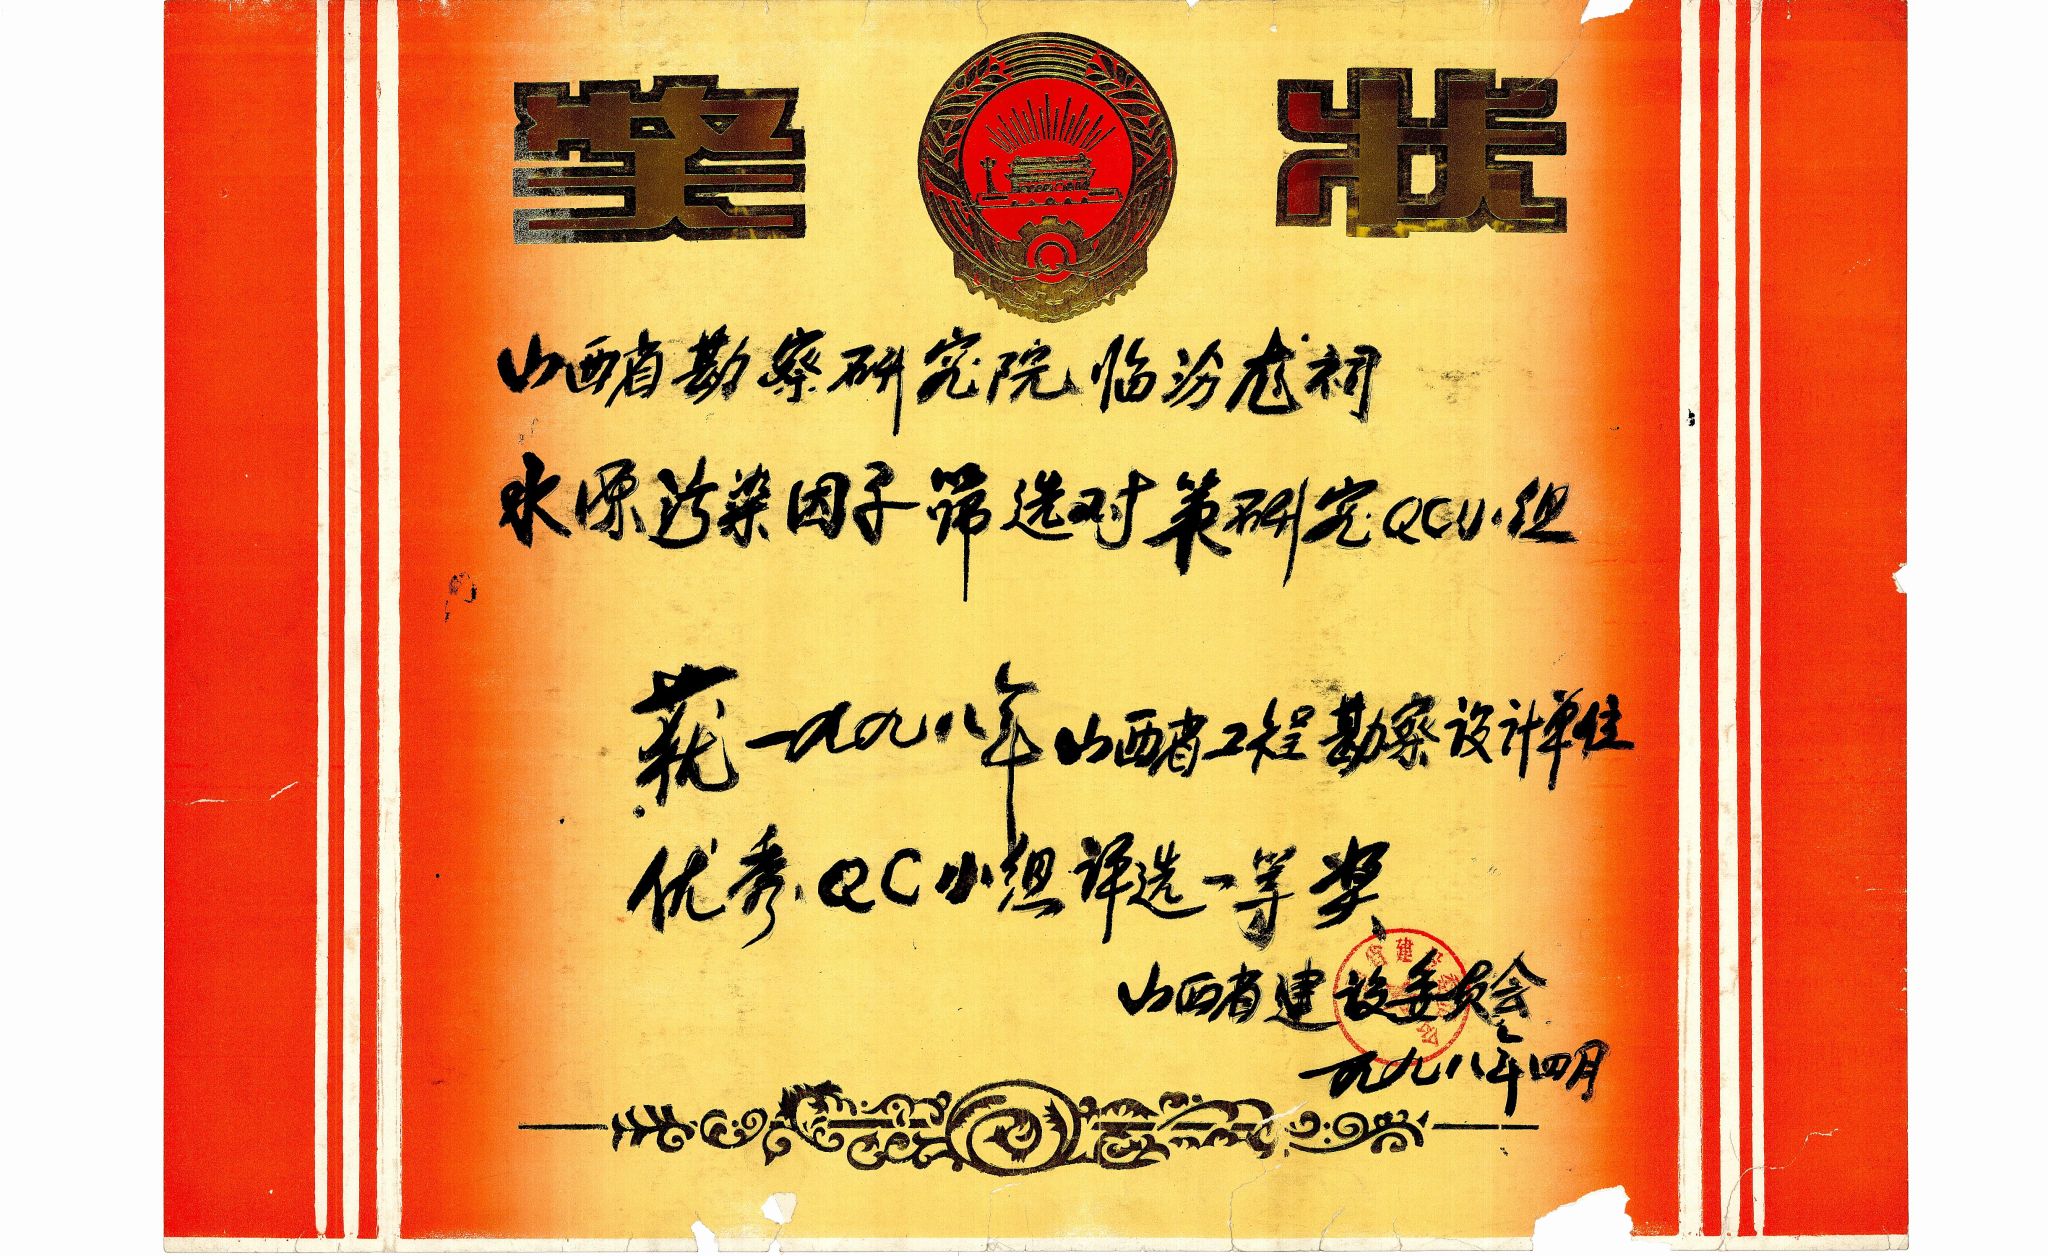 奖状
山西省勘察研究院临汾龙祠
水源污染因子筛选对策研究QC小组
获一九九八年山西省工程勘察设计单位
优秀QC小组评选一等奖
山西省建设委员会
一九九八年四月